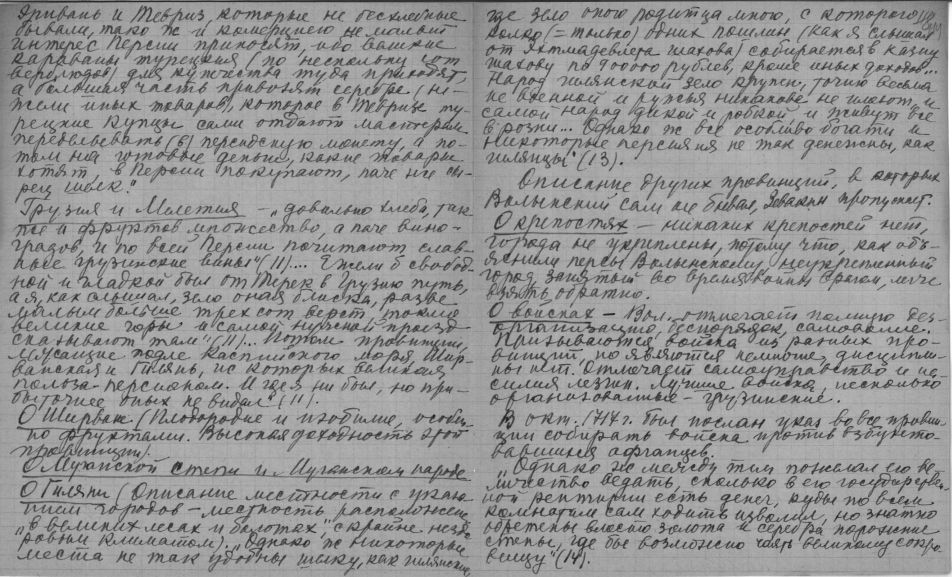 Эривань и Тевриз, которые не бесхлебные
бывали, тако ж и комерциею немалой
интерес Персии приносят, ибо великие
караваны турецкия (по нескольку сот
верблюдов) для купечества туда приходят,
а большая часть привозят серебра, не-
жели иных товаров, которое в Тевризе ту-
рецкие купцы сами отдают мастерам
переделывать (в) персидскую монету, а по-
том на готовые деньги, какие товары
хотят, в Персии покупают, паче же сы-
рец шелк."
Грузия и Мелетия – „довольно хлеба, так
же и фруктов множество, а паче вино-
градов, и по всей Персии почитают слав-
ные грузинские вины" (11).... Ежели б свобод-
ной и гладкой был от Терек в Грузию путь,
а я, как слышал, зело оная близка, разве
малым больше трех сот верст, токмо
великие горы и самой нужной проезд
сказывают там" (11)... Потом провинции,
лежащие подле Каспийского моря, Шир-
ванская и Гилянь, ис которых великая
польза персианом. И где я ни был, но при-
быточнее оных не видал" (11).
О Ширване (Плодородие и изобилие, особен-
но фруктами. Высокая доходность этой
провинции).
О Муганской степи и Муганском народе
О Гиляни (Описание местности с указа-
нием городов – местность расположена
„в великих лесах и болотах" с крайне нездо-
ровым климатом). „Однако ж некоторые
места не так удобны шелку, как гилянские,
где зело оного родитца много, с которого
колко (= только) одних пошлин (как я слышал
от Эхтмадевлета шахова) собирается в казну
шахову по 900000 рублев, кроме иных доходов...
Народ гилянской зело крупен, точию весьма
не военной и ружья никакова не имеют, и
самой народ дикой и робкой, и живут все
в розни... Однако ж все особливо богати и
некоторые персияня не так денежны, как
гилянцы" (13).
Описание других провинций, в которых
Волынский сам не бывал, Зевакин пропускает.
О крепостях – никаких крепостей нет,
города не укреплены, потому что, как объ-
яснили персы Волынскому, неукрепленный
город, занятый во время войны врагом, легче
взять обратно.
О войсках – Вол. отмечает полную дез-
организацию, беспорядок, самоволие.
Призываются войска из разных про-
винций, но являются немногие, дисципли-
ны нет. Отмечает самоуправство и на-
силия лезгин. Лучшие войска, несколько
организованные – грузинские.
В окт. 1717 г. был послан указ во все провин-
ции собирать войска против взбунто-
вавшихся афганцев.
„Однако ж между тем пожелал его ве-
личество ведать, сколько в его государствен-
ной рентерии есть денег, куды по всем
комнатам сам ходить изволил, но знатно
обретены вместо золота и серебра порожние
стены, где бы возможно чаять великому сокро-
вищу" (14).